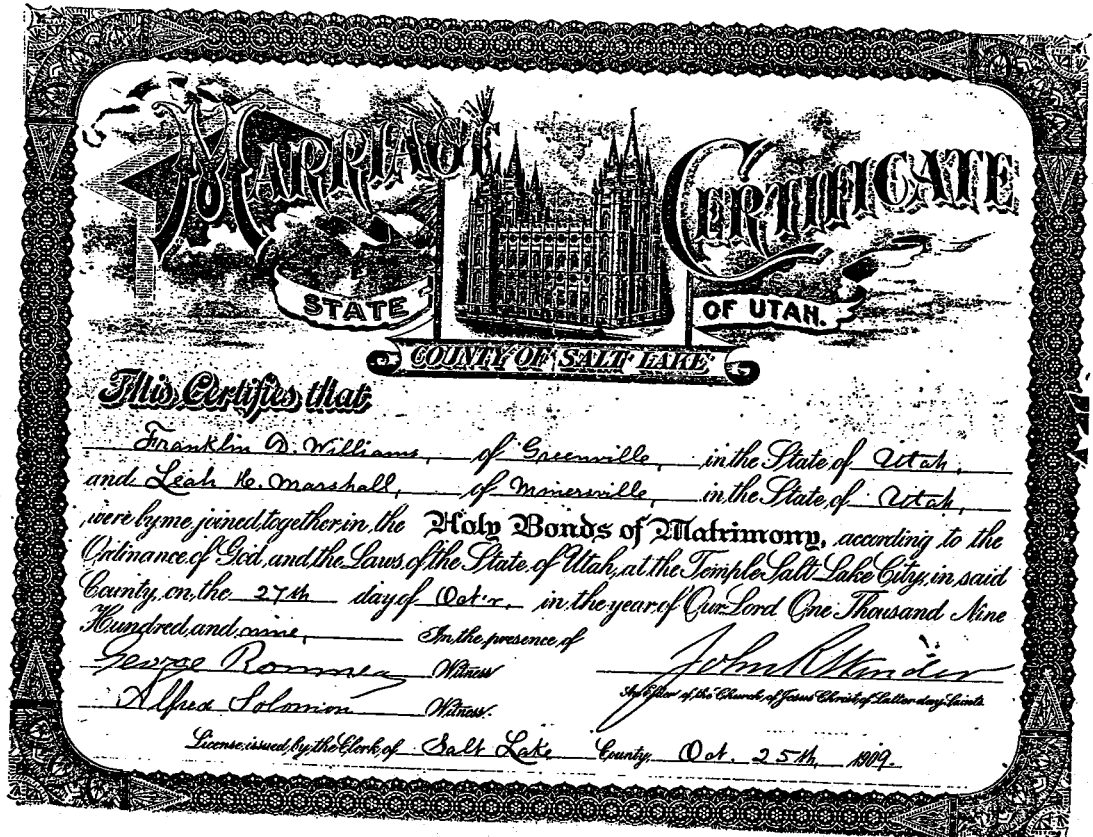 MARRIAGE CERTIFICATE
STATE OF UTAH.
COUNTY OF SALT LAKE
This Certifies that
Franklin D. Williams, of Greenville, in the State of Utah,
and Leah H. Marshall, of Minersville, in the State of Utah,
were by me joined together in the Holy Bonds of Matrimony, according to the
Ordinance of God and the Laws of the State of Utah, at the Temple Salt Lake City, in said
County, on the 27th day of Oct'r, in the year of Our Lord One Thousand Nine
Hundred and nine, In the presence of
George Romney Witness
John R Winder
An Elder of the Church of Jesus Christ of Latter-day Saints.
Alfred Solomon Witness.
License issued by the Clerk of Salt Lake County, Oct. 25th 1909.